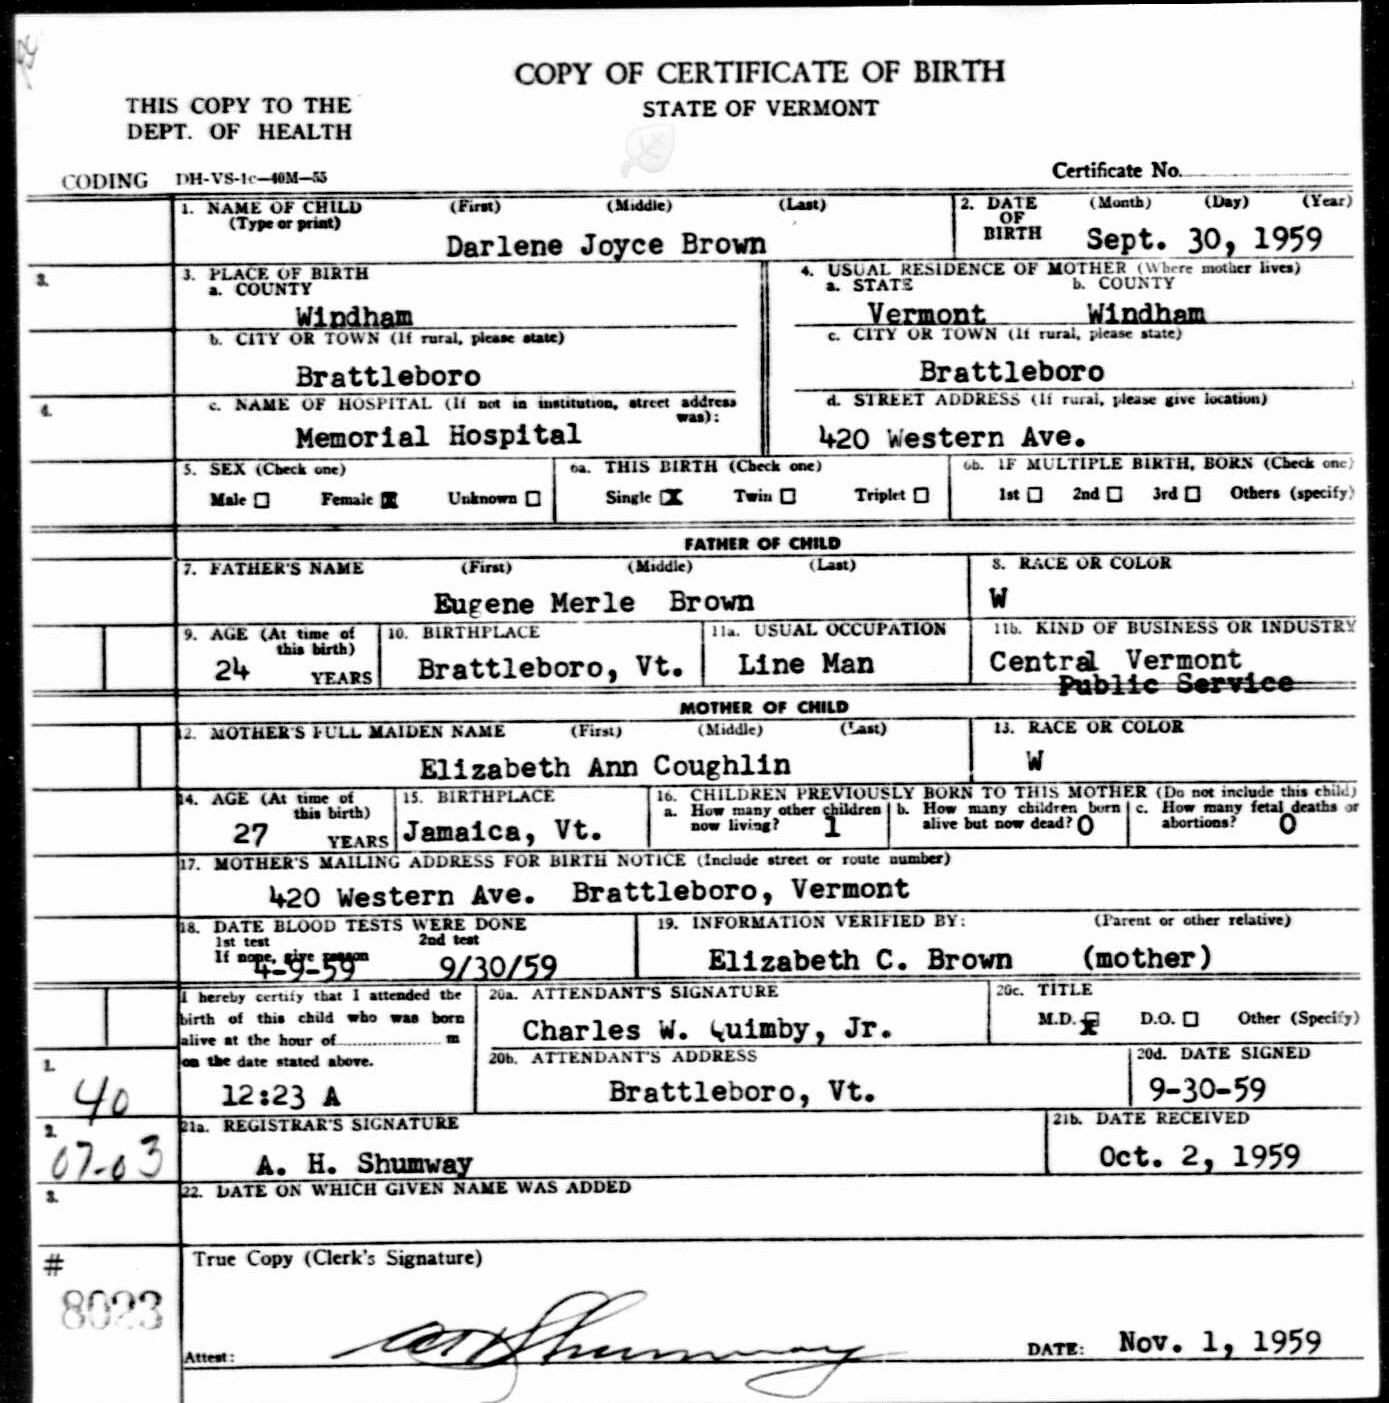 COPY OF CERTIFICATE OF BIRTH
STATE OF VERMONT
THIS COPY TO THE
DEPT. OF HEALTH
CODING DH-VS-1c—40M—55
Certificate No.
1. NAME OF CHILD (First) (Middle) (Last)
(Type or print)
Darlene Joyce Brown
2. DATE OF BIRTH (Month) (Day) (Year)
Sept. 30, 1959
3.
3. PLACE OF BIRTH
a. COUNTY
Windham
b. CITY OR TOWN (If rural, please state)
Brattleboro
4.
c. NAME OF HOSPITAL (If not in institution, street address was):
Memorial Hospital
4. USUAL RESIDENCE OF MOTHER (Where mother lives)
a. STATE b. COUNTY
Vermont Windham
c. CITY OR TOWN (If rural, please state)
Brattleboro
d. STREET ADDRESS (If rural, please give location)
420 Western Ave.
5. SEX (Check one)
Male ☐ Female ☒ Unknown ☐
6a. THIS BIRTH (Check one)
Single ☒ Twin ☐ Triplet ☐
6b. IF MULTIPLE BIRTH, BORN (Check one)
1st ☐ 2nd ☐ 3rd ☐ Others (specify)
FATHER OF CHILD
7. FATHER'S NAME (First) (Middle) (Last)
Eugene Merle Brown
8. RACE OR COLOR
W
9. AGE (At time of this birth)
24 YEARS
10. BIRTHPLACE
Brattleboro, Vt.
11a. USUAL OCCUPATION
Line Man
11b. KIND OF BUSINESS OR INDUSTRY
Central Vermont
Public Service
MOTHER OF CHILD
12. MOTHER'S FULL MAIDEN NAME (First) (Middle) (Last)
Elizabeth Ann Coughlin
13. RACE OR COLOR
W
14. AGE (At time of this birth)
27 YEARS
15. BIRTHPLACE
Jamaica, Vt.
16. CHILDREN PREVIOUSLY BORN TO THIS MOTHER (Do not include this child)
a. How many other children now living? 1
b. How many children born alive but now dead? 0
c. How many fetal deaths or abortions? 0
17. MOTHER'S MAILING ADDRESS FOR BIRTH NOTICE (Include street or route number)
420 Western Ave. Brattleboro, Vermont
18. DATE BLOOD TESTS WERE DONE
1st test 2nd test
If none, give reason
4-9-59 9/30/59
19. INFORMATION VERIFIED BY: (Parent or other relative)
Elizabeth C. Brown (mother)
I hereby certify that I attended the
birth of this child who was born
alive at the hour of m
on the date stated above.
12:23 A
20a. ATTENDANT'S SIGNATURE
Charles W. Quimby, Jr.
20c. TITLE
M.D. ☒ D.O. ☐ Other (Specify)
20b. ATTENDANT'S ADDRESS
Brattleboro, Vt.
20d. DATE SIGNED
9-30-59
1.
40
2.
07-03
21a. REGISTRAR'S SIGNATURE
A. H. Shumway
21b. DATE RECEIVED
Oct. 2, 1959
3.
22. DATE ON WHICH GIVEN NAME WAS ADDED
#
8023
True Copy (Clerk's Signature)
Attest: A H Shumway
DATE: Nov. 1, 1959